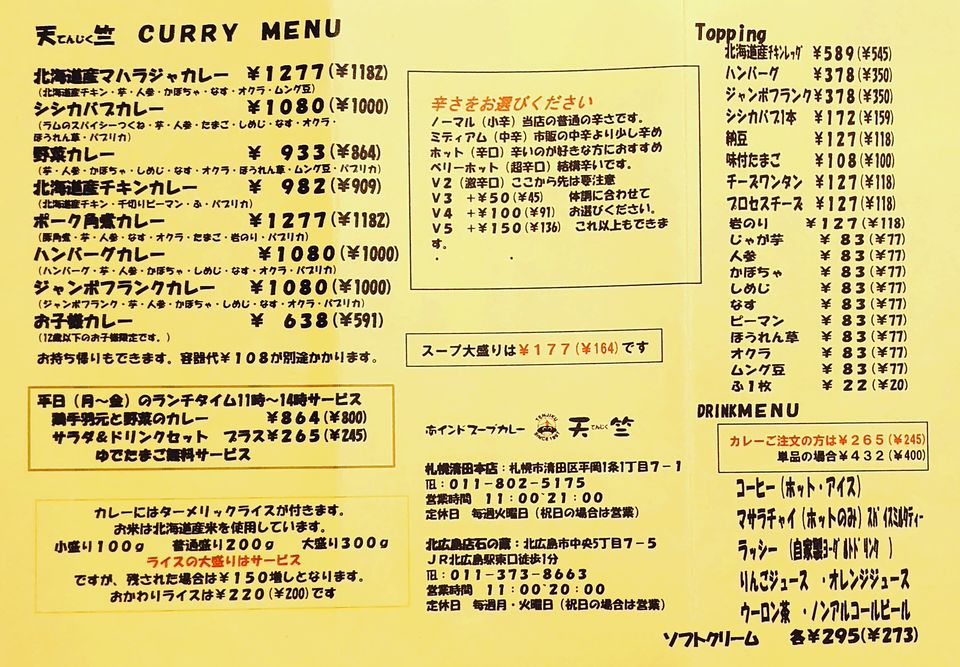 天てんじく竺 CURRY MENU
北海道産マハラジャカレー ￥1277(￥1182)
(北海道産チキン・芋・人参・かぼちゃ・なす・オクラ・ムング豆)
シシカバブカレー ￥1080(￥1000)
(ラムのスパイシーつくね・芋・人参・たまご・しめじ・なす・オクラ・
ほうれん草・パプリカ)
野菜カレー ￥ 933(￥864)
(芋・人参・かぼちゃ・しめじ・なす・オクラ・ほうれん草・ムング豆・パプリカ)
北海道産チキンカレー ￥ 982(￥909)
(北海道産チキン・千切りピーマン・ふ・パプリカ)
ポーク角煮カレー ￥1277(￥1182)
(豚角煮・芋・人参・なす・オクラ・たまご・岩のり・パプリカ)
ハンバーグカレー ￥1080(￥1000)
(ハンバーグ・芋・人参・かぼちゃ・しめじ・なす・オクラ・パプリカ)
ジャンボフランクカレー ￥1080(￥1000)
(ジャンボフランク・芋・人参・かぼちゃ・しめじ・なす・オクラ・パプリカ)
お子様カレー ￥ 638(￥591)
(12歳以下のお子様限定です。)
お持ち帰りもできます。容器代￥108が別途かかります。
平日（月～金）のランチタイム11時～14時サービス
鶏手羽元と野菜のカレー ￥864(￥800)
サラダ&ドリンクセット プラス￥265(￥245)
ゆでたまご無料サービス
カレーにはターメリックライスが付きます。
お米は北海道産米を使用しています。
小盛り100g 普通盛り200g 大盛り300g
ライスの大盛りはサービス
ですが、残された場合は￥150増しとなります。
おかわりライスは￥220(￥200)です
辛さをお選びください
ノーマル（小辛）当店の普通の辛さです。
ミディアム（中辛）市販の中辛より少し辛め
ホット（辛口）辛いのが好きな方におすすめ
ベリーホット（超辛口）結構辛いです。
V2（激辛口）ここから先は要注意
V3 +￥50(￥45) 体調に合わせて
V4 +￥100(￥91) お選びください。
V5 +￥150(￥136) これ以上もできま
す。
スープ大盛りは￥177(￥164)です
ホインドスープカレー TENJIKU 天てんじく竺
札幌清田本店：札幌市清田区平岡1条1丁目7－1
TEL：011-802-5175
営業時間 11:00~21:00
定休日 毎週火曜日（祝日の場合は営業）
北広島店石の蔵：北広島市中央5丁目7－5
JR北広島駅東口徒歩1分
TEL：011-373-8663
営業時間 11:00~20:00
定休日 毎週月・火曜日（祝日の場合は営業）
Topping
北海道産チキンレッグ ￥589(￥545)
ハンバーグ ￥378(￥350)
ジャンボフランク￥378(￥350)
シシカバブ1本 ￥172(￥159)
納豆 ￥127(￥118)
味付たまご ￥108(￥100)
チーズワンタン ￥127(￥118)
プロセスチーズ ￥127(￥118)
岩のり ￥127(￥118)
じゃが芋 ￥ 83(￥77)
人参 ￥ 83(￥77)
かぼちゃ ￥ 83(￥77)
しめじ ￥ 83(￥77)
なす ￥ 83(￥77)
ピーマン ￥ 83(￥77)
ほうれん草 ￥ 83(￥77)
オクラ ￥ 83(￥77)
ムング豆 ￥ 83(￥77)
ふ1枚 ￥ 22(￥20)
DRINKMENU
カレーご注文の方は￥265(￥245)
単品の場合￥432(￥400)
コーヒー（ホット・アイス）
マサラチャイ（ホットのみ）スパイスミルクティー
ラッシー（自家製ヨーグルトドリンク）
りんごジュース ・オレンジジュース
ウーロン茶 ・ノンアルコールビール
ソフトクリーム 各￥295(￥273)